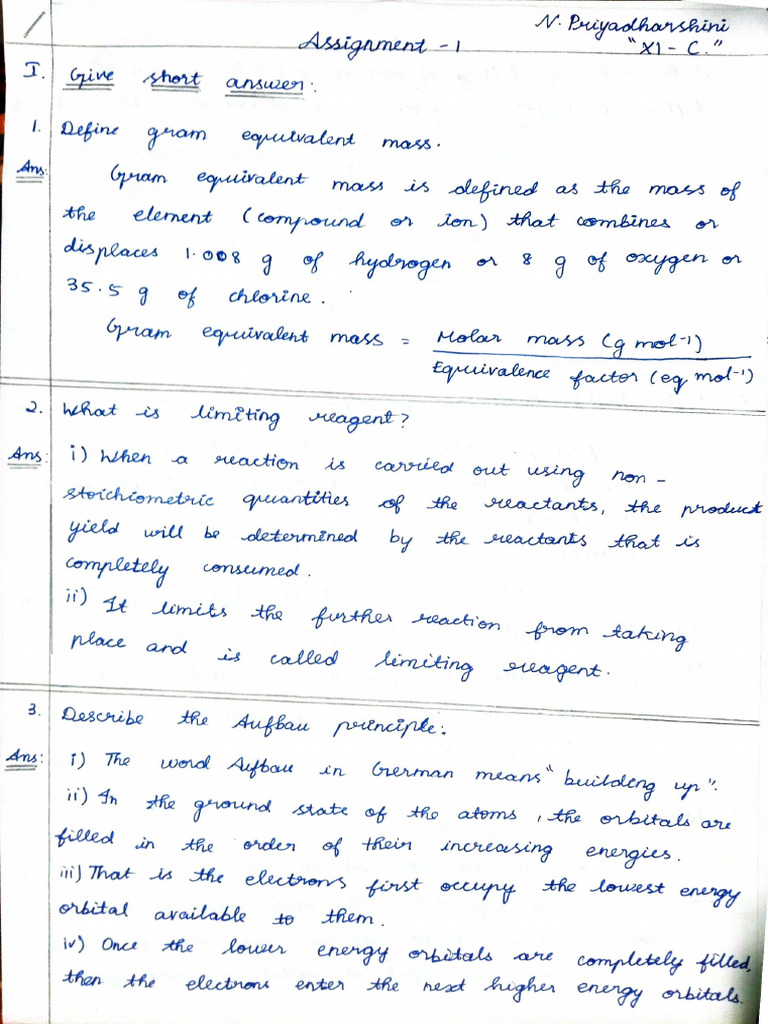 N. Priyadharshini
Assignment - 1
"XI - C."
I. Give short answer:
1. Define gram equivalent mass.
Ans: Gram equivalent mass is defined as the mass of
the element (compound or ion) that combines or
displaces 1.008 g of hydrogen or 8 g of oxygen or
35.5 g of chlorine.
Gram equivalent mass = Molar mass (g mol⁻¹)
Equivalence factor (eq mol⁻¹)
2. What is limiting reagent?
Ans: i) When a reaction is carried out using non -
stoichiometric quantities of the reactants, the product
yield will be determined by the reactants that is
completely consumed.
ii) It limits the further reaction from taking
place and is called limiting reagent.
3. Describe the Aufbau principle:
Ans: i) The word Aufbau in German means "building up".
ii) In the ground state of the atoms, the orbitals are
filled in the order of their increasing energies.
iii) That is the electrons first occupy the lowest energy
orbital available to them.
iv) Once the lower energy orbitals are completely filled,
then the electrons enter the next higher energy orbitals.